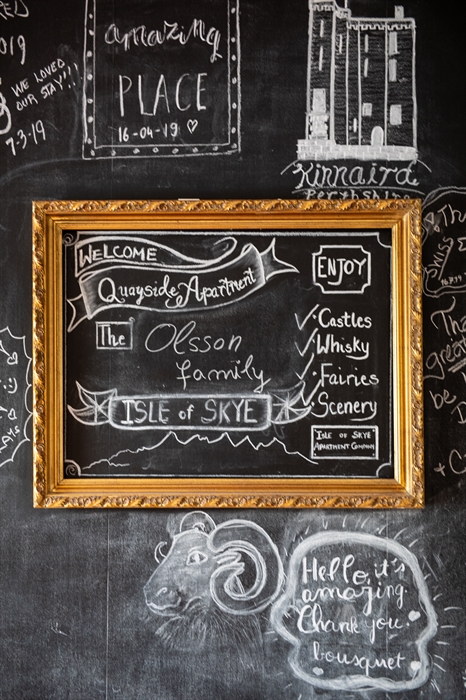 2019
WE LOVED
OUR STAY!!!
7-3-19
amazing
PLACE
16-04-19
Kinnaird
Perthshire
WELCOME
Quayside Apartment
The Olsson
family
ISLE of SKYE
ENJOY
Castles
Whisky
Fairies
Scenery
ISLE OF SKYE
APARTMENT COMPANY
Thi
SWISS
The
great
be
Hello, it's
amazing.
Thank you.
bousquet